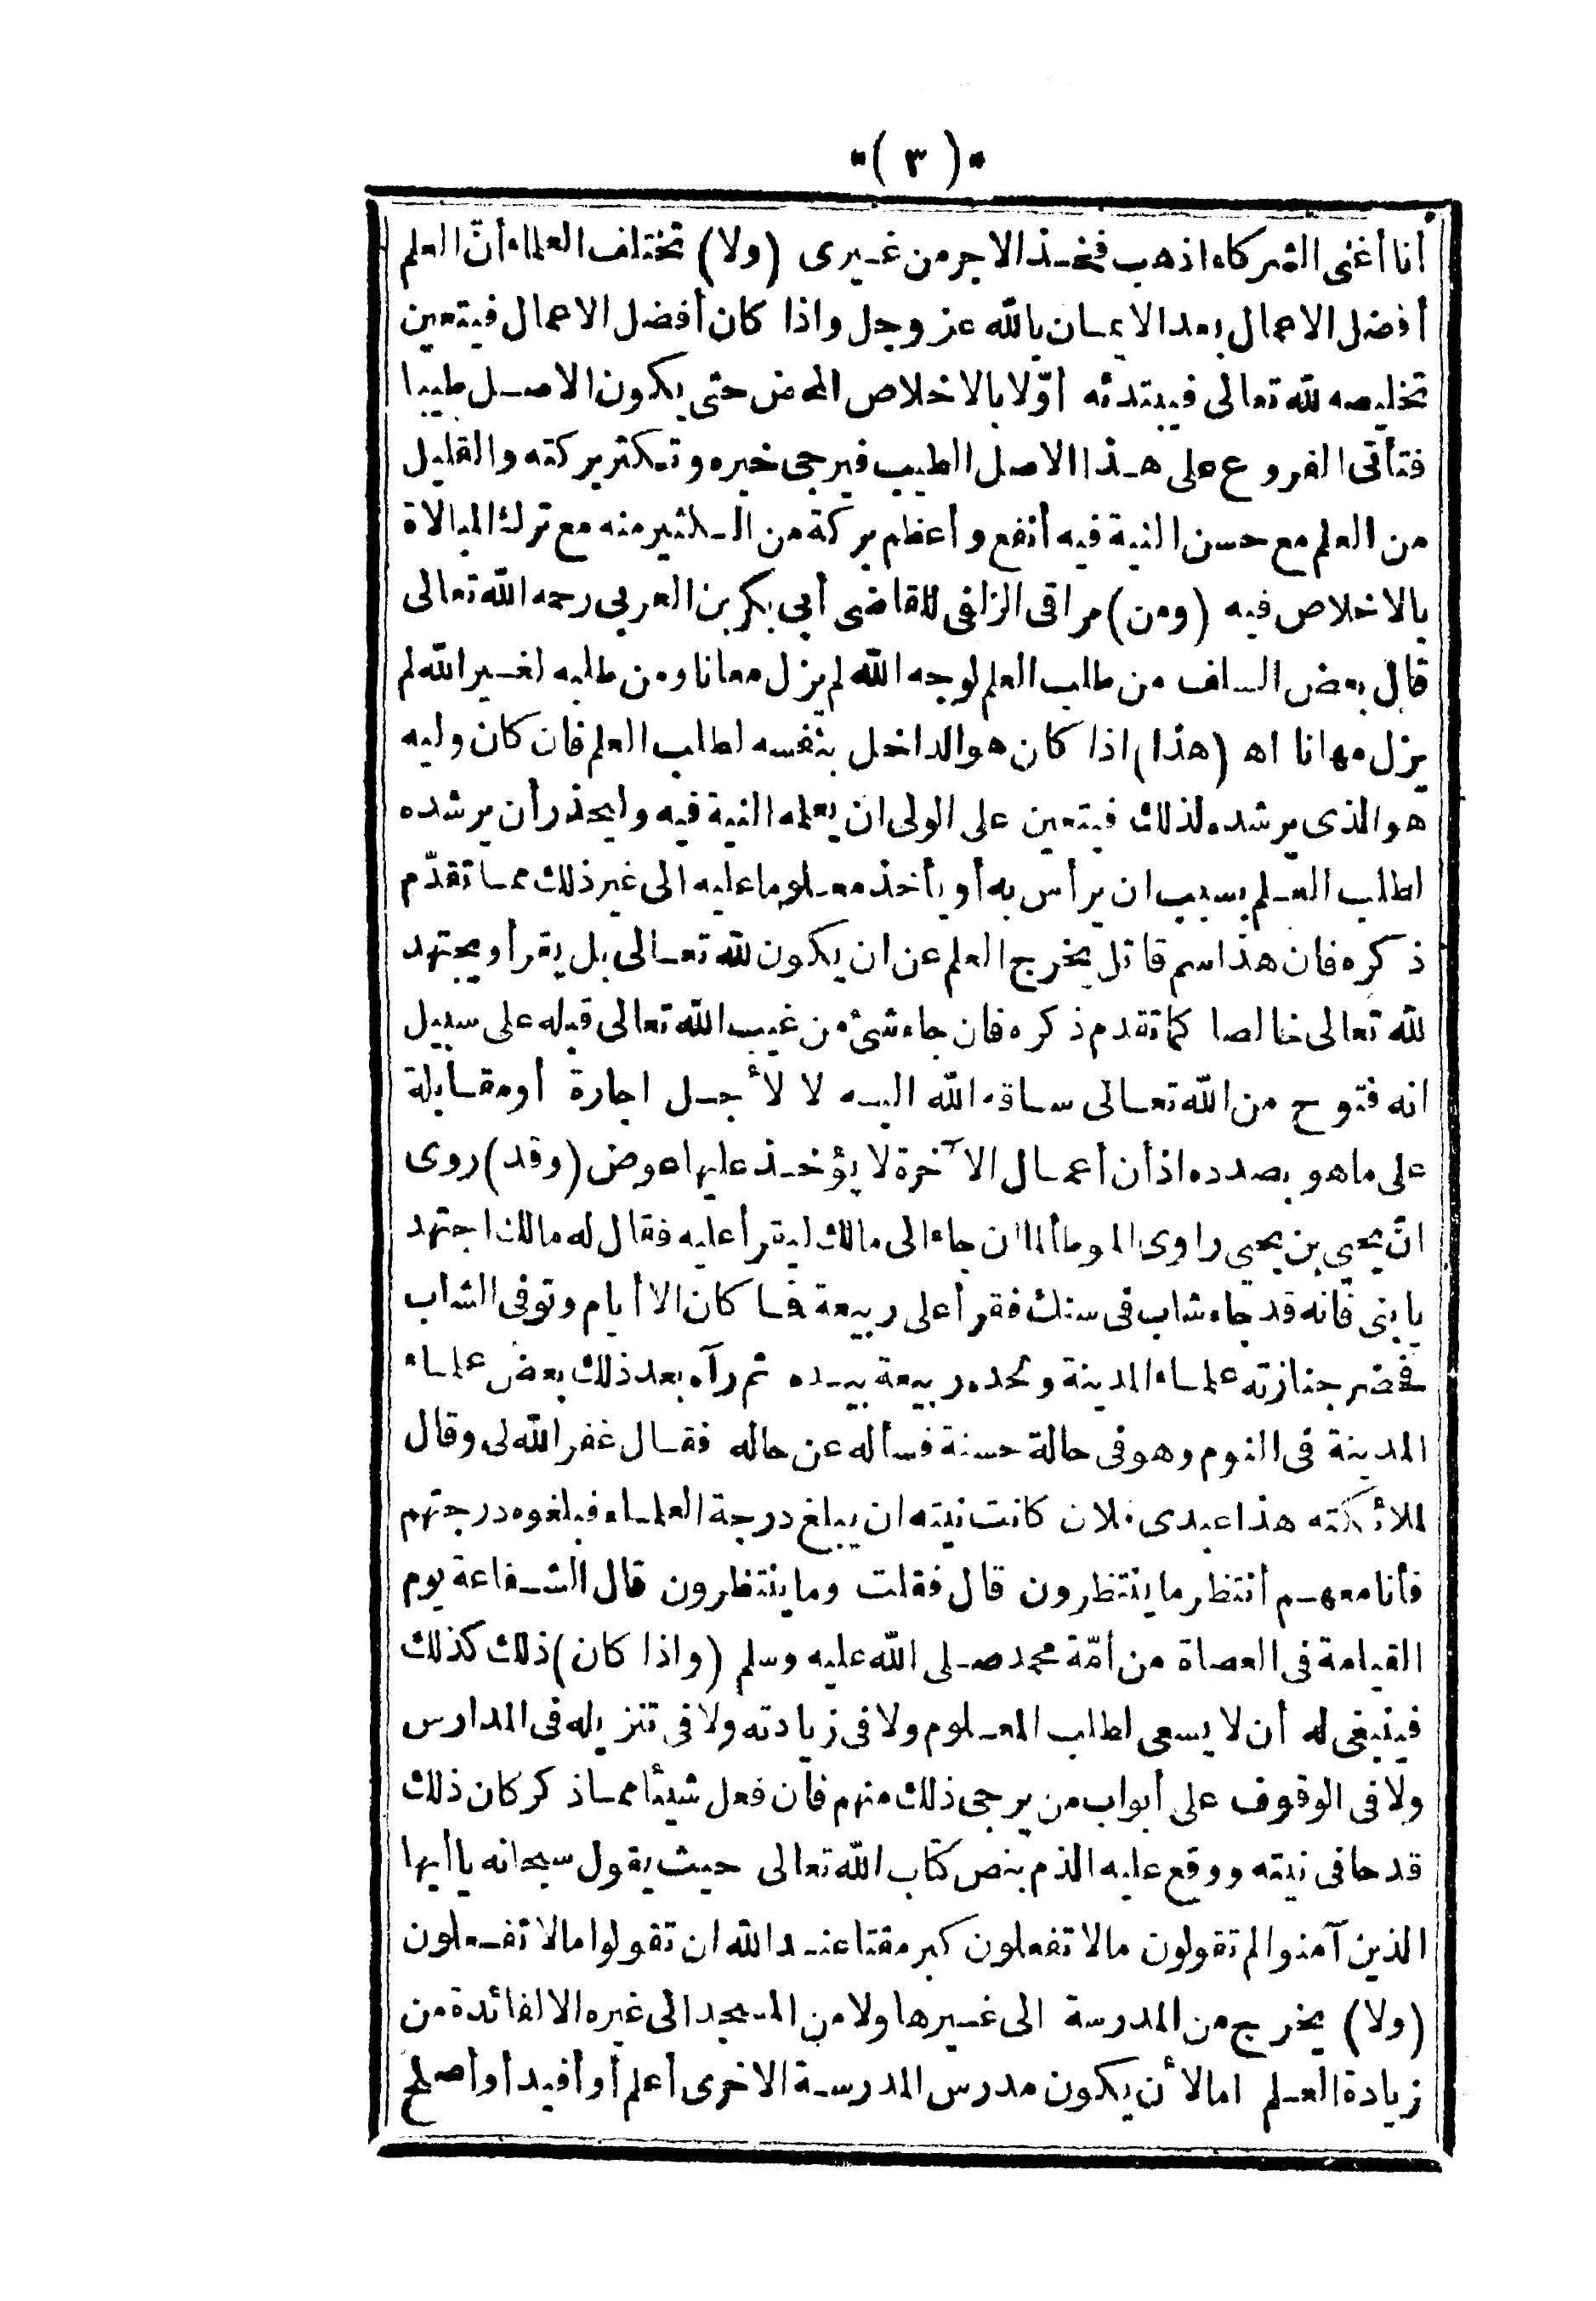 (٣)
أنا أغنى الشركاء اذهب فخذ الاجر من غيرى (ولا) تختلف العلماء أنّ العلم
أفضل الاعمال بعد الايمان بالله عز وجل واذا كان أفضل الاعمال فيتعين
تخليصه لله تعالى فيبتدئه أوّلا بالاخلاص المحض حتى يكون الاصل طيبا
فتأتى الفروع على هذا الاصل الطيب فيرجى خيره وتكثر بركته والقليل
من العلم مع حسن النية فيه أنفع وأعظم بركة من الكثير منه مع ترك المبالاة
بالاخلاص فيه (ومن) مراقى الزلفى للقاضى أبى بكر بن العربى رحمه الله تعالى
قال بعض السلف من طلب العلم لوجه الله لم يزل معانا ومن طلبه لغير الله لم
يزل مهانا اه (هذا) اذا كان هو الداخل بنفسه لطلب العلم فان كان وليه
هو الذى يرشده لذلك فيتعين على الولى ان يعلمه النية فيه وليحذر أن يرشده
لطلب العلم بسبب ان يرأس به أو يأخذ معلوما عليه الى غير ذلك مما تقدّم
ذكره فان هذا سم قاتل يخرج العلم عن ان يكون لله تعالى بل يقرأ ويجتهد
لله تعالى خالصا كما تقدم ذكره فان جاء شئ من غيب الله تعالى قبله على سبيل
انه فتوح من الله تعالى ساقه الله اليه لا لأجل اجارة أو مقابلة
على ما هو بصدده اذ أن أعمال الآخرة لا يؤخذ عليها عوض (وقد) روى
انّ يحيى بن يحيى راوى الموطأ لما ان جاء الى مالك ليقرأ عليه فقال له مالك اجتهد
يا بنى فانه قد جاء شاب فى سنك فقرأ على ربيعة فما كان الا أيام وتوفى الشاب
فحضر جنازته علماء المدينة ولحده ربيعة بيده ثم رآه بعد ذلك بعض علماء
المدينة فى النوم وهو فى حالة حسنة فسأله عن حاله فقال غفر الله لى وقال
لملائكته هذا عبدى فلان كانت نيته ان يبلغ درجة العلماء فبلغوه درجتهم
فأنا معهم أنتظر ما ينتظرون قال فقلت وما ينتظرون قال الشفاعة يوم
القيامة فى العصاة من أمّة محمد صلى الله عليه وسلم (واذا كان) ذلك كذلك
فينبغى له أن لا يسعى لطلب المعلوم ولا فى زيادته ولا فى تنزيله فى المدارس
ولا فى الوقوف على أبواب من يرجى ذلك منهم فان فعل شيئا مما ذكر كان ذلك
قدحا فى نيته ووقع عليه الذم بنص كتاب الله تعالى حيث يقول سبحانه يا أيها
الذين آمنوا لم تقولون ما لا تفعلون كبر مقتا عند الله ان تقولوا ما لا تفعلون
(ولا) يخرج من المدرسة الى غيرها ولا من المسجد الى غيره الا لفائدة من
زيادة العلم اما لأن يكون مدرس المدرسة الاخرى أعلم أو أفيد أو أصلح